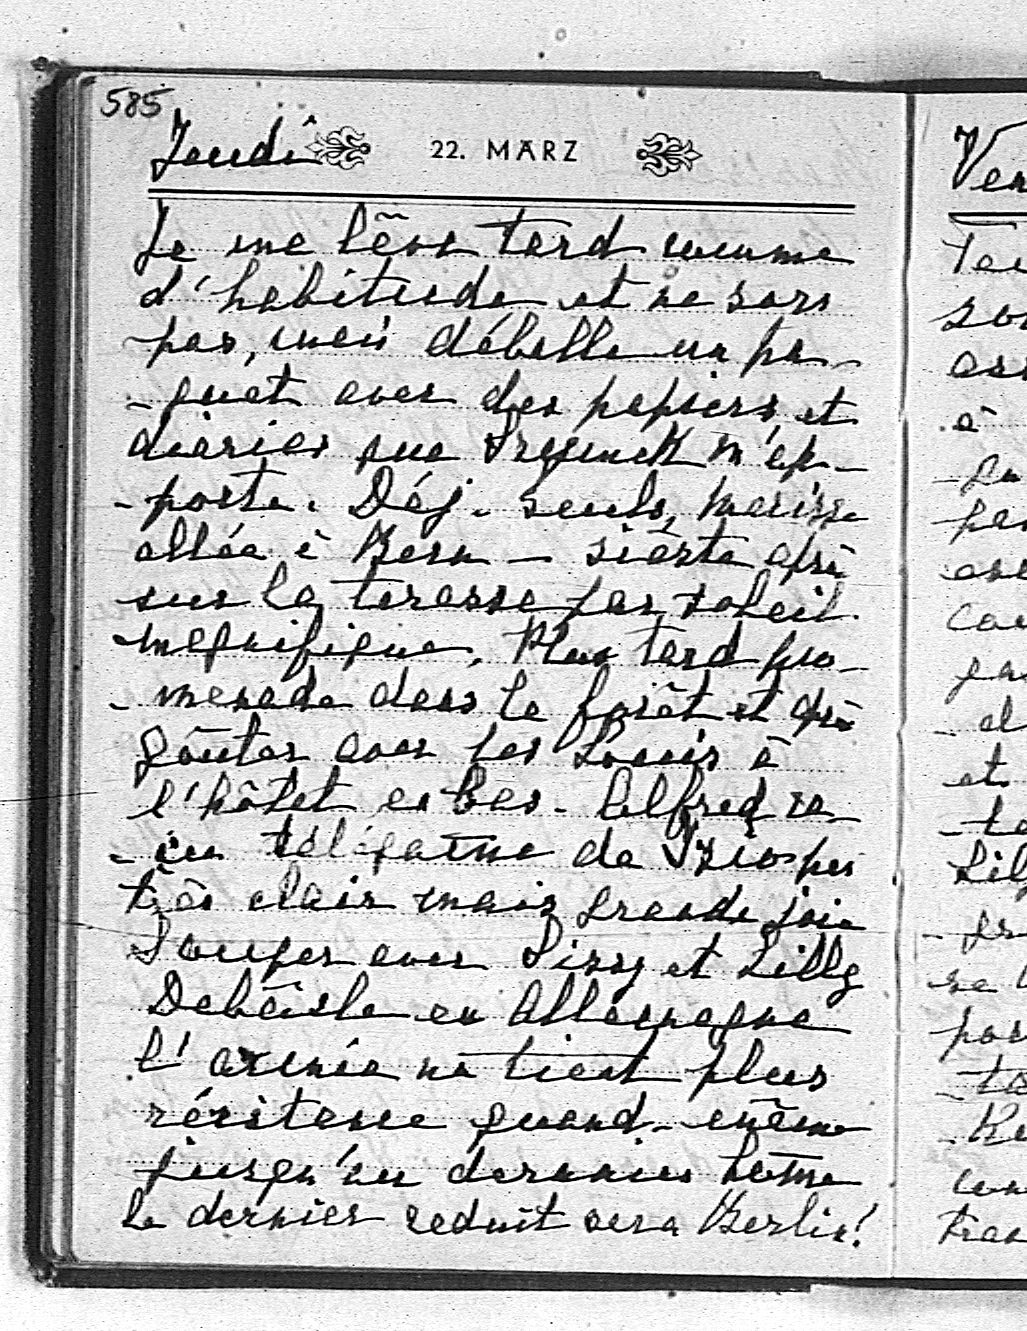 585
Jeudi 22. MÄRZ
Je me lève tard comme
d'habitude et ne sors
pas, mais déballe un pa-
-quet avec des papiers et
diaries que m'ap-
-porte. Déj. seuls,
allée à Bern — siesta apr.
sur la terasse par soleil
magnifique. Plus tard pro-
-menade dans la forêt et apr.
goûter avec les Louis à
l'hôtel en bas. Alfred re-
-çu télégamme de pas
très clair mais grande joie
Souper avec Sissy et Lilly
Debâcle en Allemagne
l'armée ne tient plus
résistence quand-même
jusqu'au dernier homme
le dernier reduit sera Berlin!
Ven
à
et